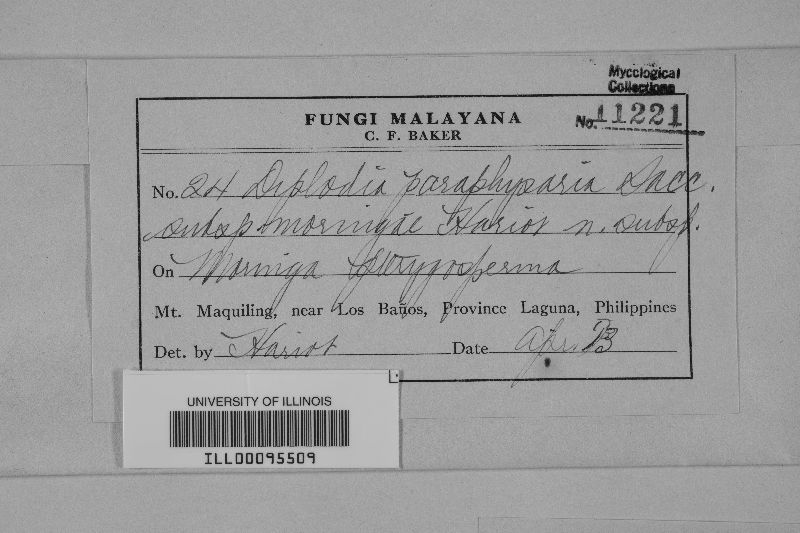 Mycological
Collections
No. 11221
FUNGI MALAYANA
C. F. BAKER
No. 24 Diplodia paraphysaria Sacc.
subsp. moringae Hariot n. subsp.
On Moringa pterygosperma
Mt. Maquiling, near Los Baños, Province Laguna, Philippines
Det. by Hariot Date Apr.
UNIVERSITY OF ILLINOIS
ILL00095509